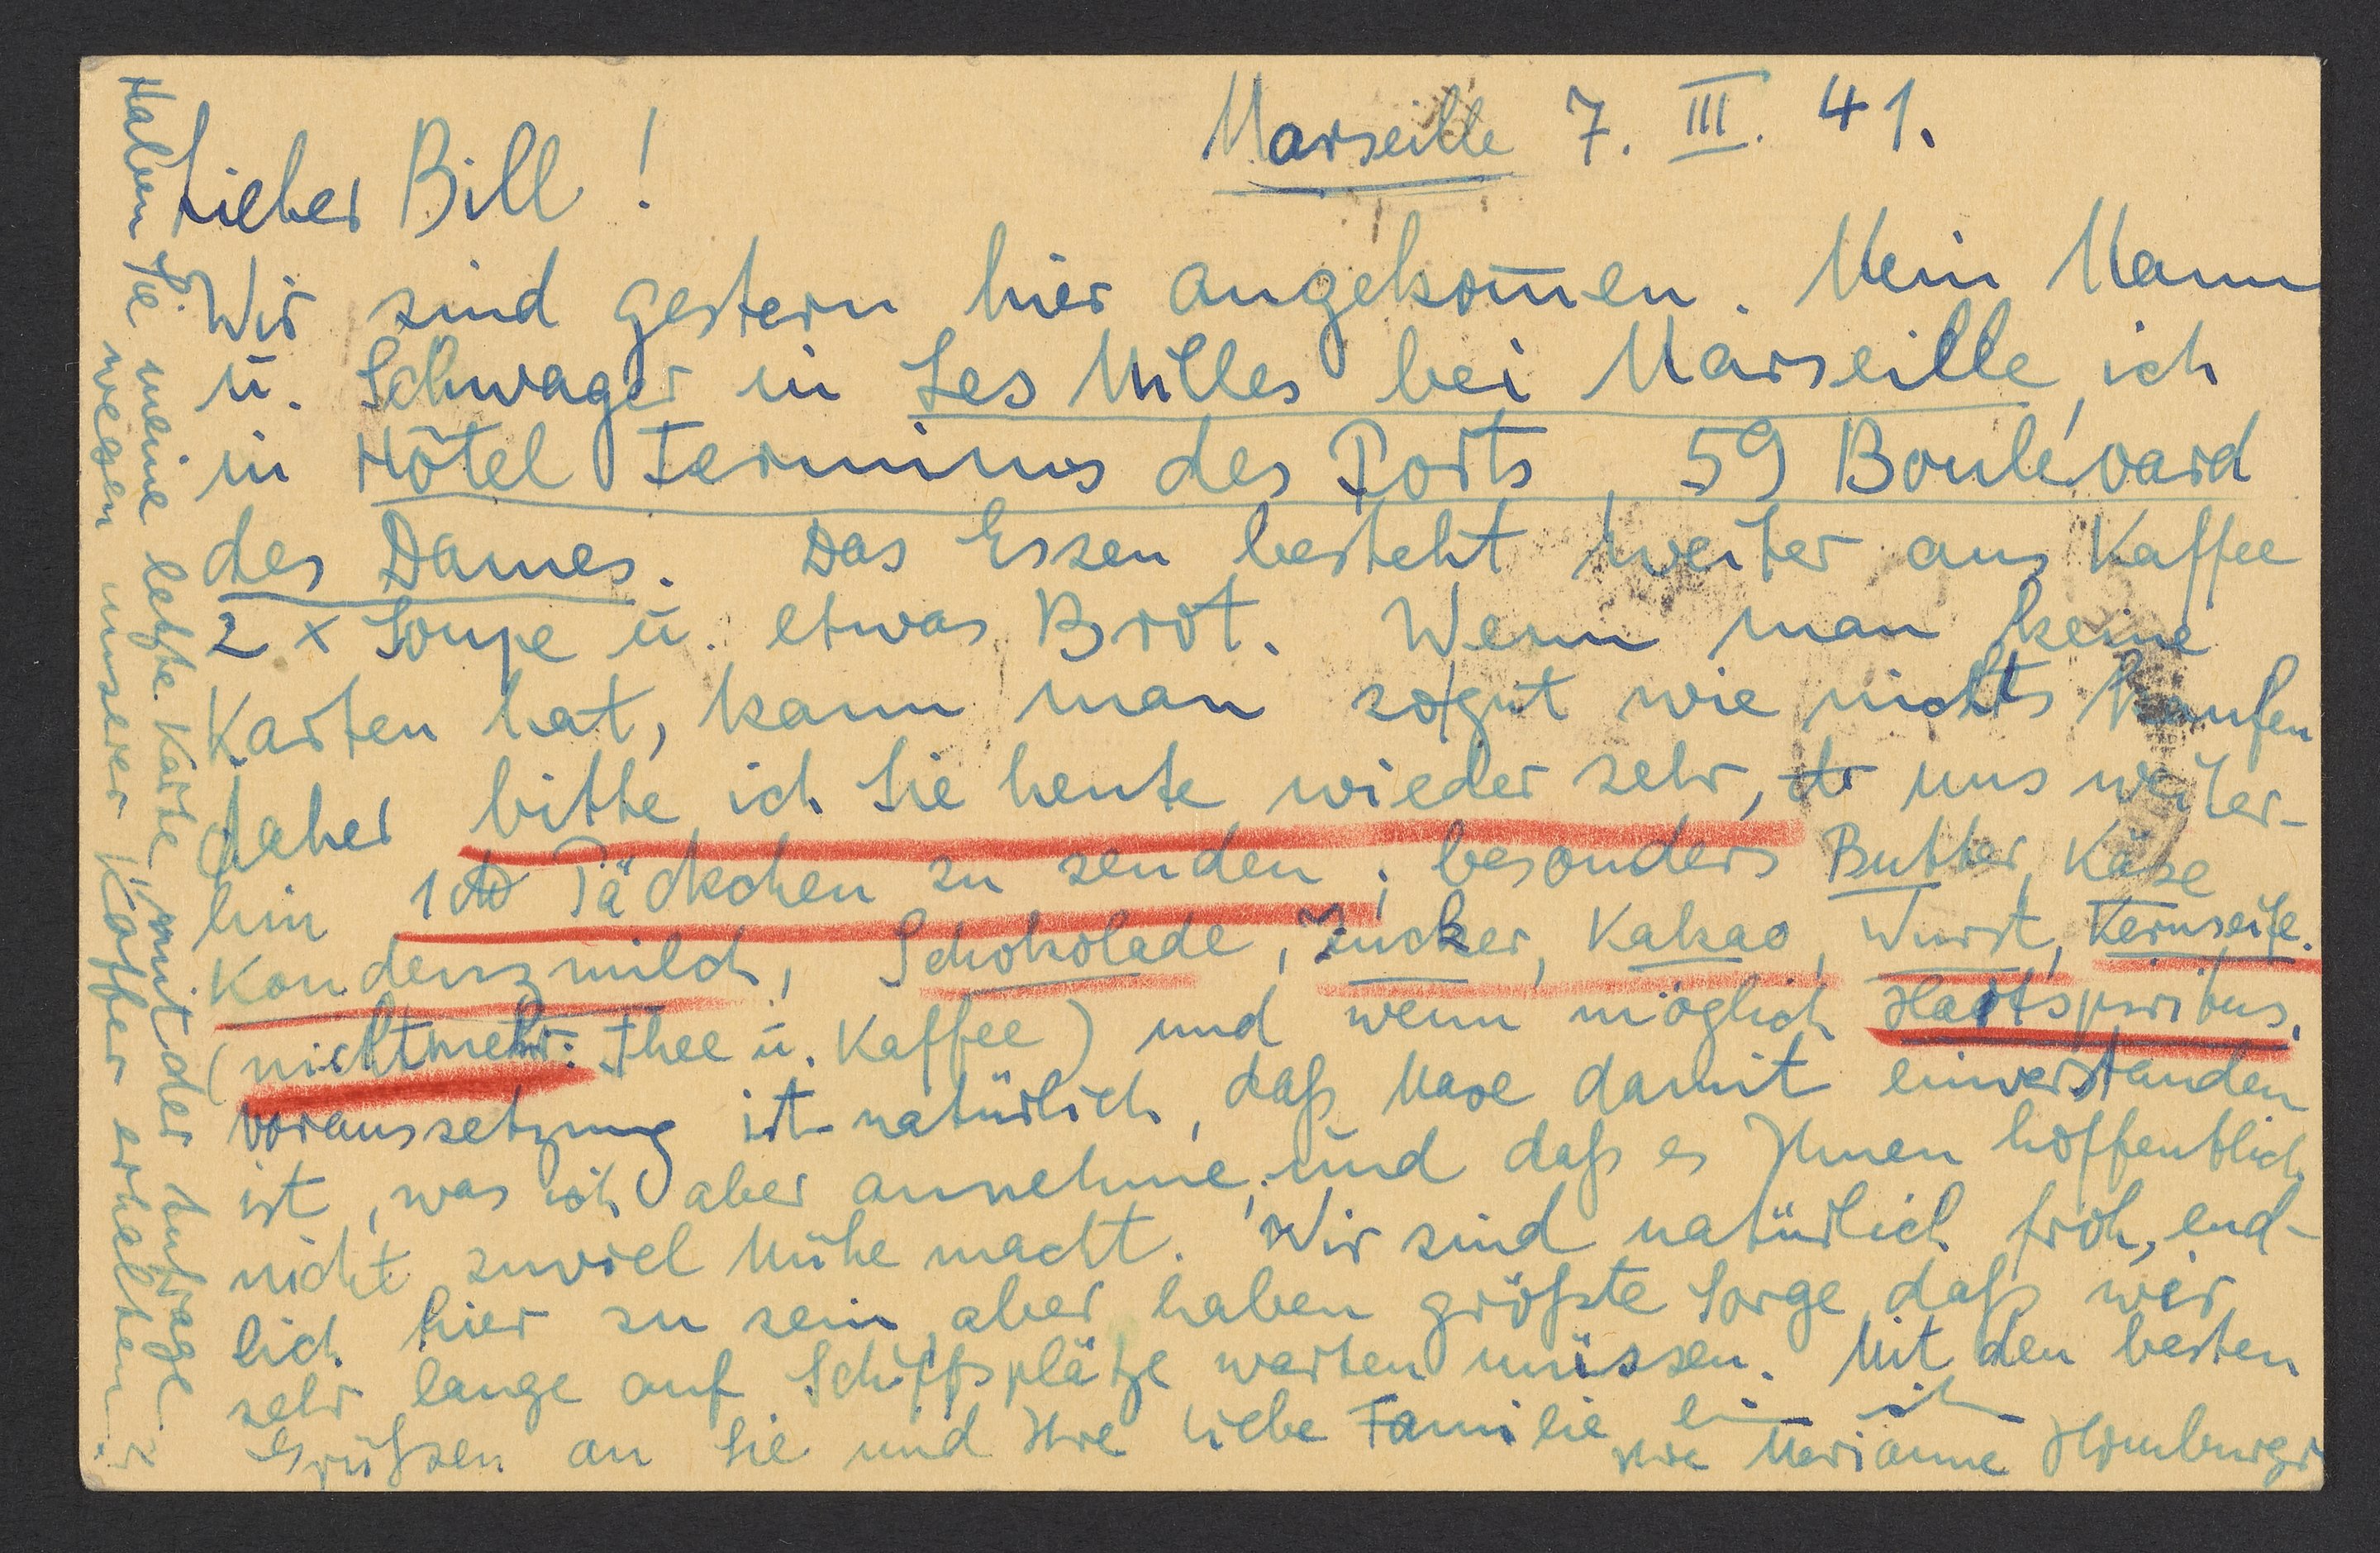 Marseille 7. III. 41.
Lieber Bill!
Wir sind gestern hier angekom̄en. Mein Mann
u. Schwager in Les Milles bei Marseille, ich
in Hôtel Terminus des Ports, 59 Boulevard
des Dames. Das Essen besteht weiter aus Kaffee
2 x Soupe u. etwas Brot. Wenn man keine
Karten hat, kann man so gut wie nichts kaufen
daher bitte ich Sie heute wieder sehr, uns weiter-
hin Päckchen zu senden; besonders Butter, Käse
Kondenzmilch, Schokolade, Zucker, Kakao, Wurst, Kernseife.
(nichtmehr: Thee u. Kaffee) und wenn möglich Hartspiritus.
Voraussetzung ist natürlich, daß Maxe damit einverstanden
ist, was ich aber annehme, und daß es Ihnen hoffentlich
nicht zuviel Mühe macht. Wir sind natürlich froh, end-
lich hier zu sein, aber haben größte Sorge, daß wir
sehr lange auf Schiffsplätze warten müssen. Mit den besten
Grüßen an Sie und Ihre liebe Familie bin ich
Ihre Marianne Homburger
Haben Sie meine letzte Karte mit der Anfrage
wegen unserer Koffer erhalten?